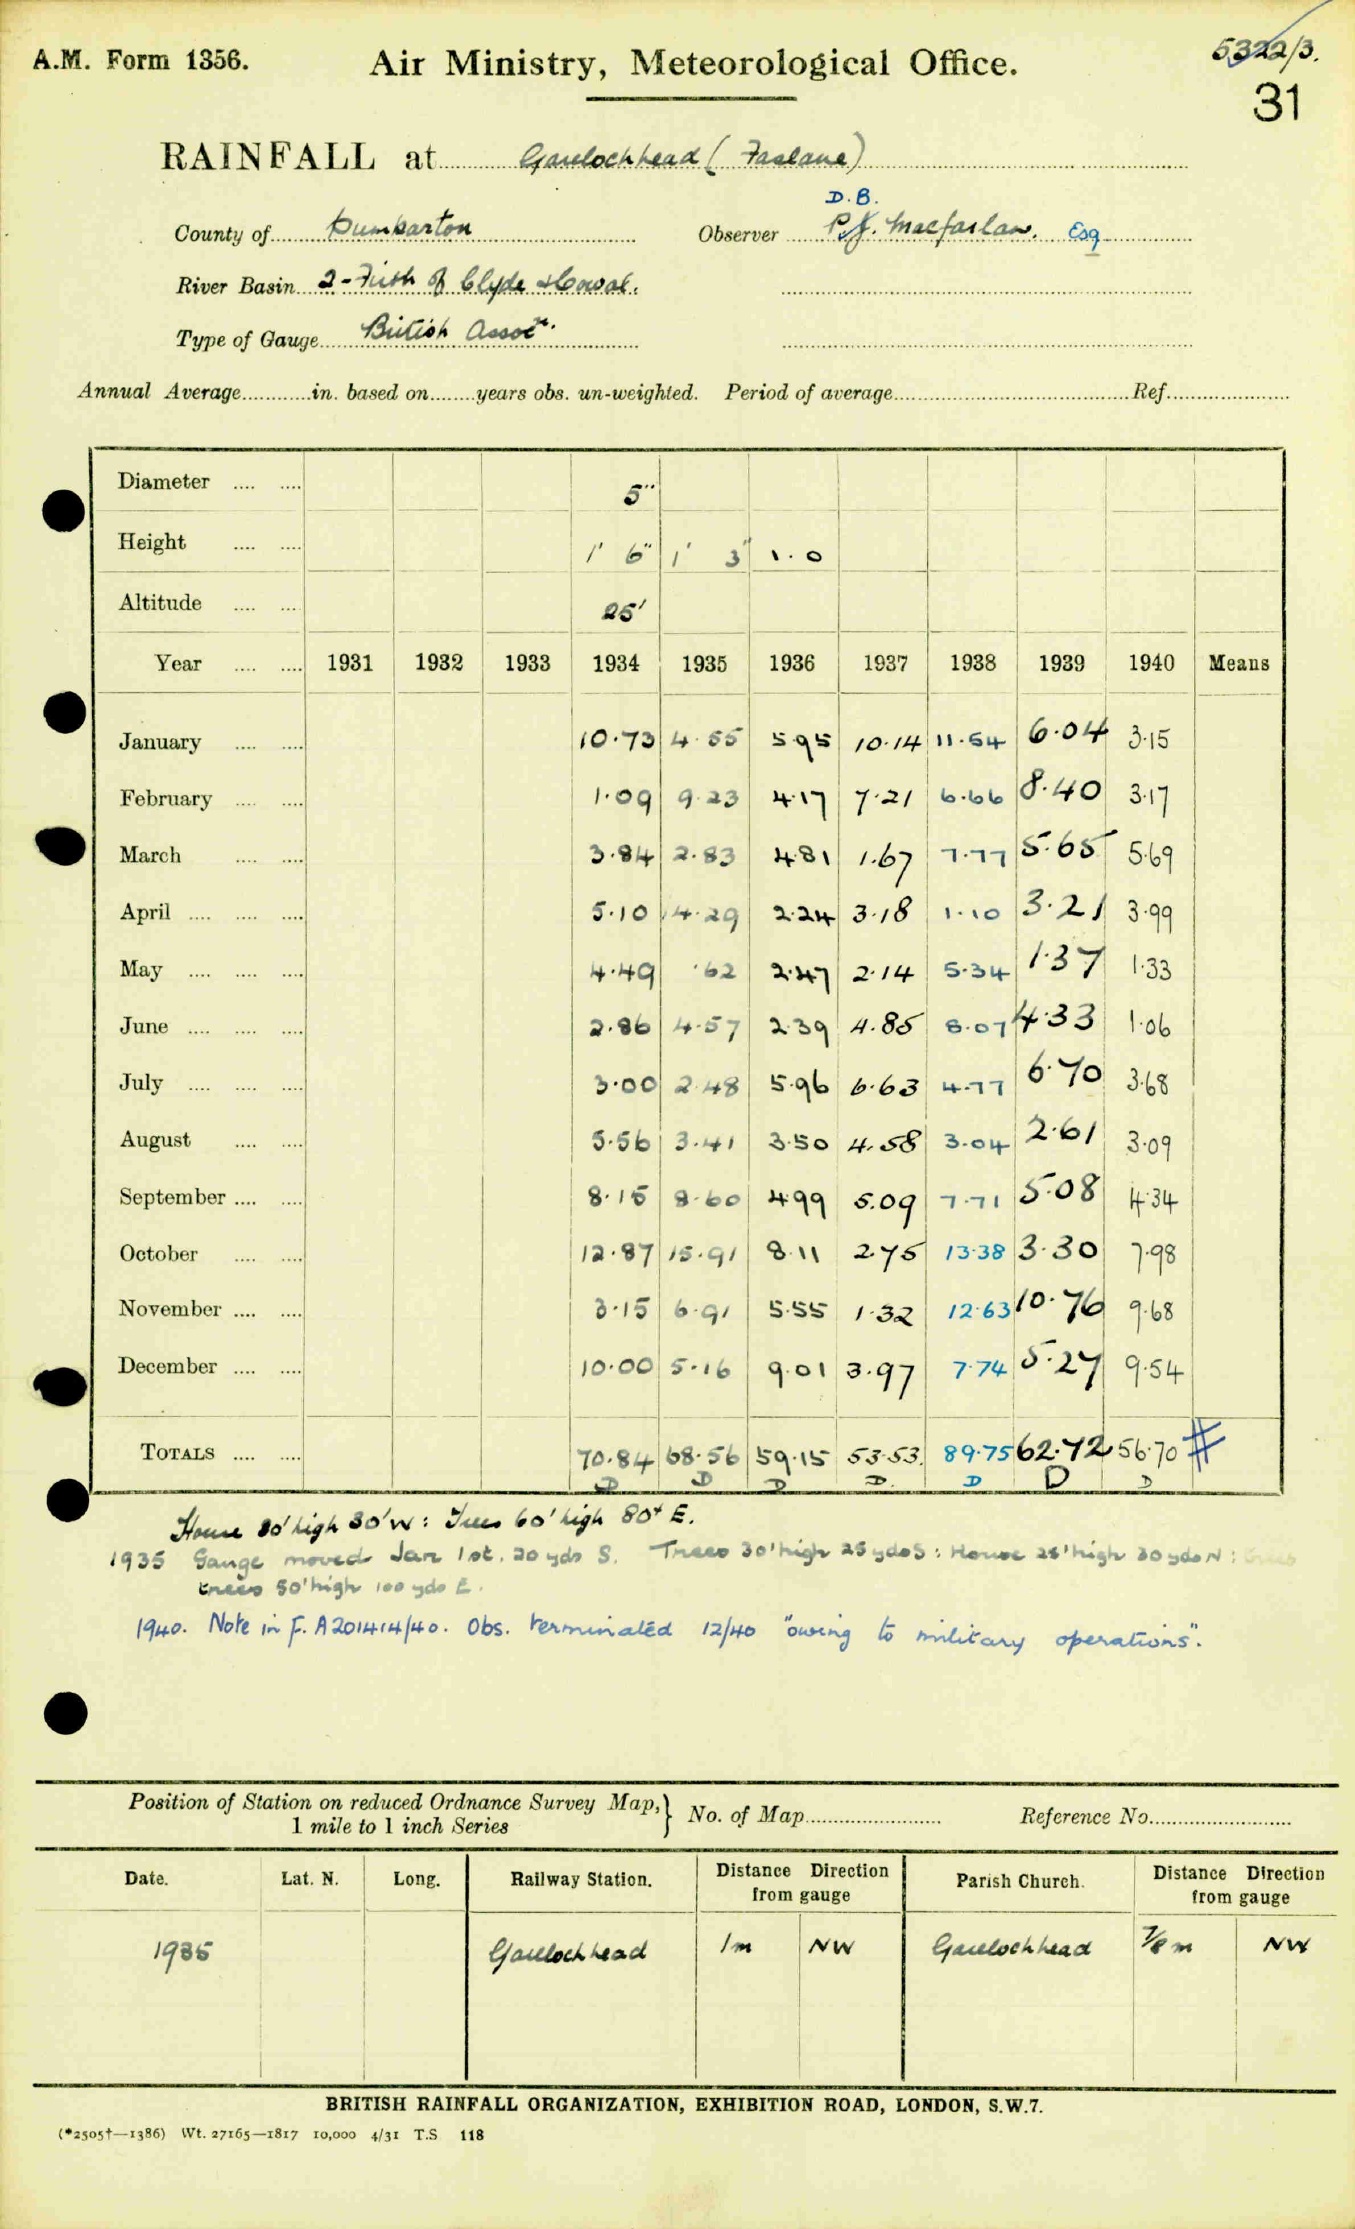 A.M. Form 1356.
Air Ministry, Meteorological Office.
5322/3.
31
RAINFALL at Garelochhead (Faslane)
D.B.
County of Dumbarton Observer P.J. Macfarlan. Esq
River Basin 2-Firth of Clyde & Cowal.
Type of Gauge British Assocn.
Annual Average............in. based on........years obs. un-weighted. Period of average........................................Ref......................
Diameter .... .... 5"
Height .... .... 1' 6" 1' 3" 1.0
Altitude .... .... 25'
Year .... .... 1931 1932 1933 1934 1935 1936 1937 1938 1939 1940 Means
January .... .... 10.73 4.55 5.95 10.14 11.54 6.04 3.15
February .... .... 1.09 9.23 4.17 7.21 6.66 8.40 3.17
March .... .... 3.84 2.83 4.81 1.67 7.77 5.65 5.69
April .... .... .... 5.10 4.29 2.24 3.18 1.10 3.21 3.99
May .... .... .... 4.49 .62 2.47 2.14 5.34 1.37 1.33
June .... .... .... 2.86 4.57 2.39 4.85 8.07 4.33 1.06
July .... .... .... 3.00 2.48 5.96 6.63 4.77 6.70 3.68
August .... .... 5.56 3.41 3.50 4.58 3.04 2.61 3.09
September .... .... 8.15 8.60 4.99 5.09 7.71 5.08 4.34
October .... .... 12.87 15.91 8.11 2.75 13.38 3.30 7.98
November .... .... 3.15 6.91 5.55 1.32 12.63 10.76 9.68
December .... .... 10.00 5.16 9.01 3.97 7.74 5.27 9.54
TOTALS .... .... 70.84 68.56 59.15 53.53. 89.75 62.72 56.70 #
D D D D. D D D
House 30' high 30' W: Trees 60' high 80' E.
1935 Gauge moved Jan 1st. 20 yds S. Trees 30' high 25 yds S: House 25' high 30 yds N: trees
trees 50' high 100 yds E.
1940. Note in F. A201414/40. Obs. terminated 12/40 "owing to military operations".
Position of Station on reduced Ordnance Survey Map,} No. of Map........................ Reference No.........................
1 mile to 1 inch Series
Date. Lat. N. Long. Railway Station. Distance Direction from gauge Parish Church. Distance Direction from gauge
1935 Garelochhead 1m NW Garelochhead 7/8 m NW
BRITISH RAINFALL ORGANIZATION, EXHIBITION ROAD, LONDON, S.W.7.
(*2505†—1386) Wt. 27165—1817 10,000 4/31 T.S 118